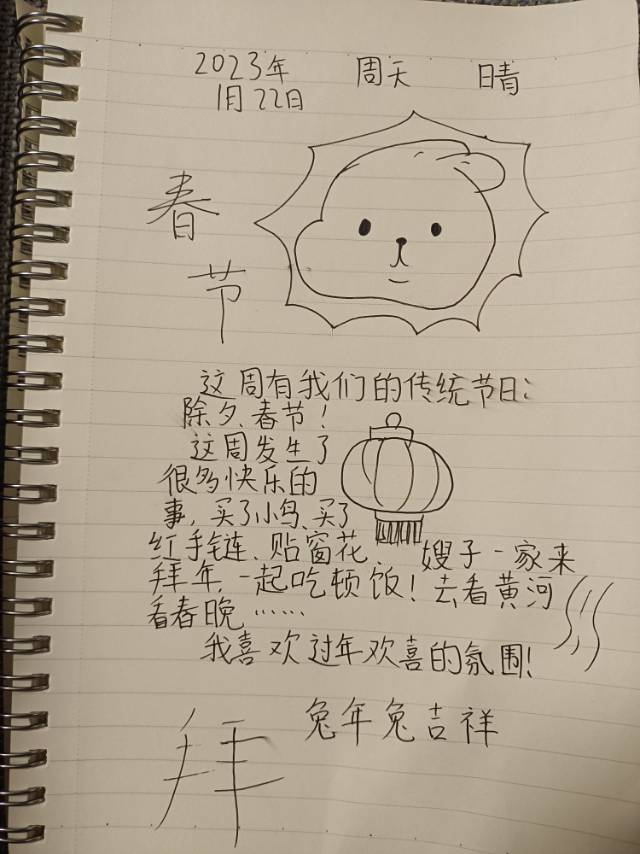 2023年 周天 晴
1月22日
春
节
这周有我们的传统节日：
除夕、春节！
这周发生了
很多快乐的
事，买了小鸟、买了
红手链、贴窗花、嫂子一家来
拜年，一起吃顿饭！去看黄河
看春晚……
我喜欢过年欢喜的氛围！
兔年兔吉祥
拜